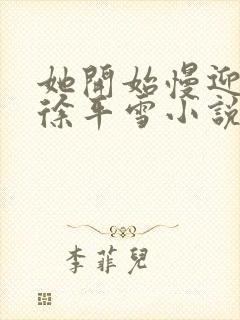 她開始慢迎
徐平雪小說
李菲兒